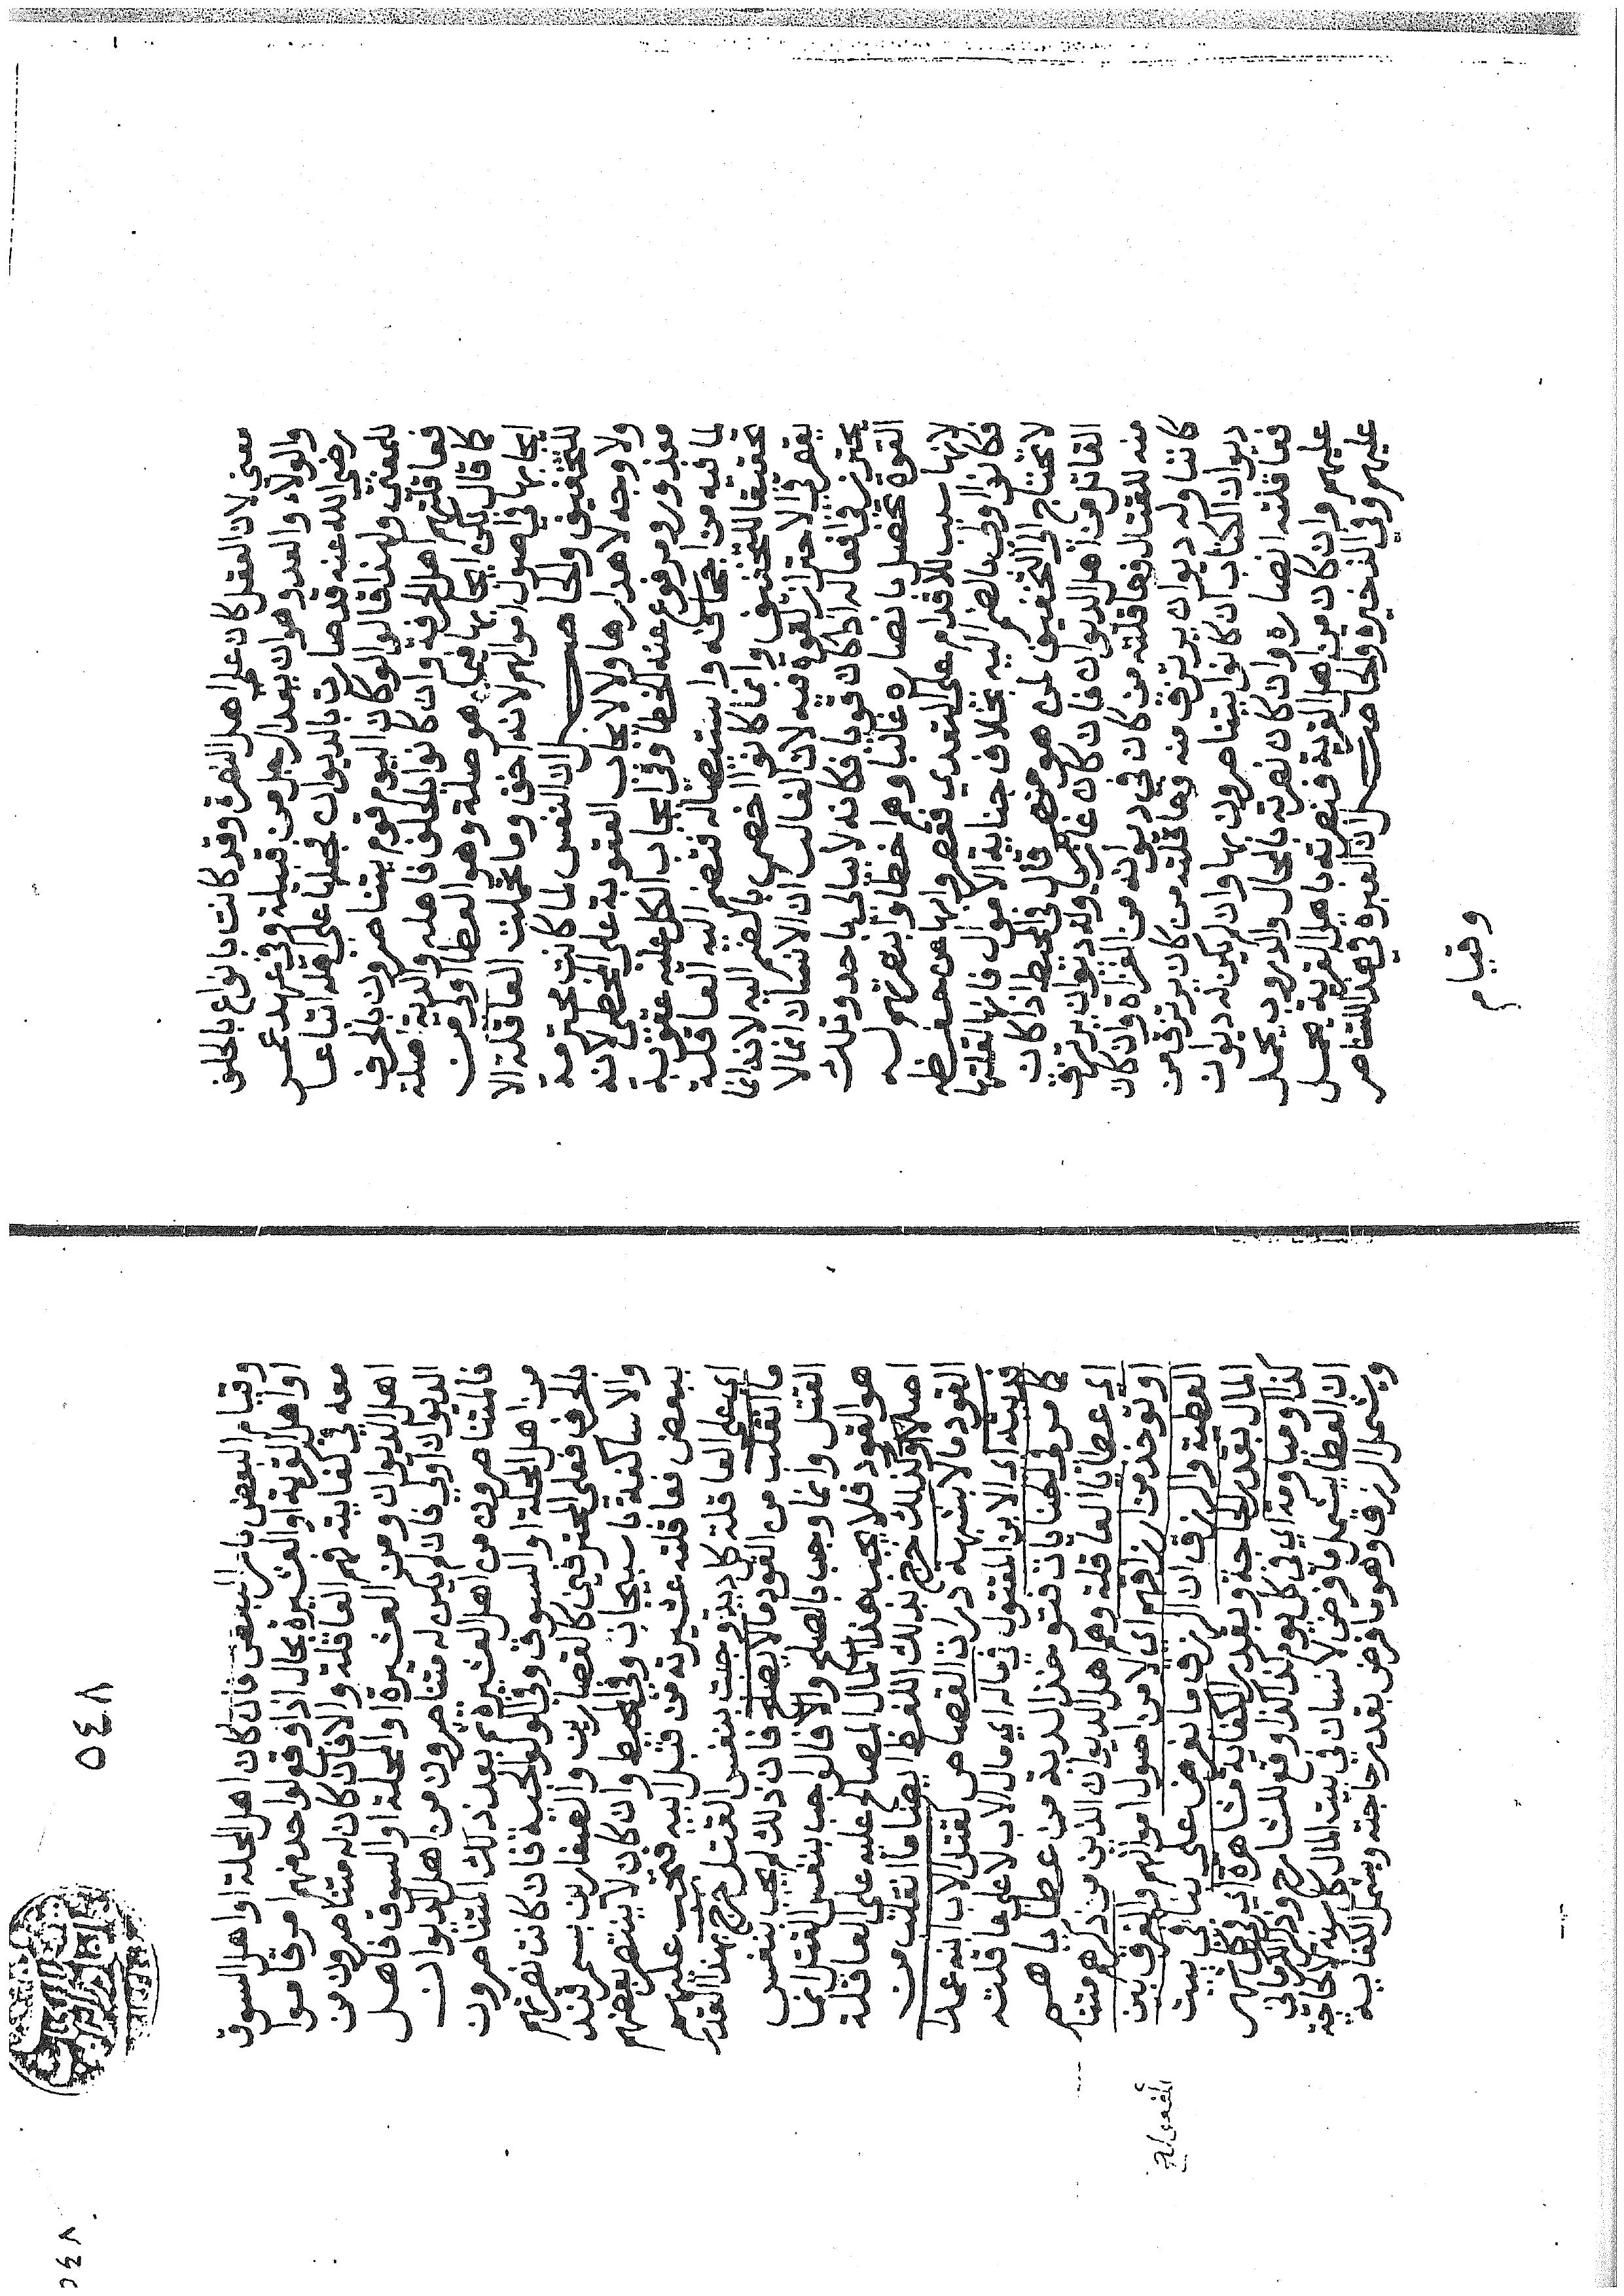 معني لان العقل كان على اهل النصرة وقد كانت بانواع بالحلف
والولاء والعد وهو ان يعد الرجل من قبيلة وفي عهد عمر
رضي الله عنه قد صارت بالديوان فجعلها على اهله اتباعا
للمعنى ولهذا قالوا لو كان اليوم قوم يتناصرون بالحرف
فعاقلتهم اهل الحرفة وان كانوا بالحلف فاهله والدية صلة
كما قال لكن ايجابها فيما هو صلة وهو العطا اولى من
ايجابها في اصول اموالهم لانه اخف وما تحملت العاقلة الا
للتخفيف والحاصل ان النفس لما كانت محترمة
ولا وجه لاهدارها ولا لايجاب العقوبة على المخطى لانه
معذور ومرفوع عنه الخطا وفي ايجاب الكل عليه عقوبة
لما فيه من اجحافه واستئصاله فتضم اليه العاقلة
تحقيقا للتخفيف وانما كانوا اخص بالضم اليه لانه انما
يقصر في الاحتراز لقوة فيه لان الغالب ان الانسان انما لا
يحترز في افعاله اذا كان قويا فكانه لا يبالي باحد وتلك
القوة تحصل بانصاره غالبا وهم اخطاوا بنصرتهم له
لانها سبب للاقدام على التعدي فقصروا بها عن حفظه
فكانوا اولى بالضم اليه بخلاف جناية الاموال فانها لقلتها
لا تحتاج الى التخفيف لمن هو منهم قال في المحيط اذا كان
القاتل من اهل الديوان فان كان غازيا وله ديوان يرتزق
منه للقتال فعاقلته من كان في ديوانه من الغزاة وان كان
كاتبا وله ديوان يرتزق منه وعاقلته من كان يرتزق من
ديوان الكتاب ان كانوا يتناصرون بها وان لم يكن له ديوان
فعاقلته انصاره وان كان نصرته بالمحال والدروب يحمل
عليهم وان كان من اهل القرية فنصرته باهل القرية يحمل
عليهم وفي الذخيرة والحاصل ان العبرة في هذا للتناصر
وقيام
٥٤٨
وقيام البعض بامر البعض فان كان اهل المحلة او اهل السوق
او اهل القرية او العشيرة بحال اذا وقع لواحد منهم امر قاموا
معه في كفايته فهم العاقلة والا فان كان له متناصرون من
اهل الديوان ومن العشيرة او المحلة او السوق فاهل
الديوان اولى فان لم يكن له متناصرون من اهل الديوان
فالمتناصرون من اهل العشيرة ثم بعد ذلك المتناصرون
من اهل المحلة او السوق وفي لو كان نصرتهم
بالحرف فعلى المحترفين كالقصارين والصفارين بسمرقند
والاساكفة باسبيجاب وفي المحيط وان كان لا ينتصر بعضهم
ببعض فعاقلته عشيرته من قبل ابيه فتجب عليهم
اي على العاقلة كل دية وجبت بنفس القتل خرج بهذا القدر
ما انقلب من القود مالا بصلح فان ذلك لم يجب بنفس
القتل وانما وجب بالصلح والا فالواجب بنفس القتل انما
هو القود فلا يجب هذا المال المصالح عليه على العاقلة
اصلا وكذلك خرج بذلك اللفظ ايضا ما انقلب من
القود مالا بشبهة درات القصاص كقتل الاب ابنه عمدا
فديته اي الابن المقتول في ماله اي مال الاب لا على عاقلته
كما مر في الجنايات فتوخذ الدية من عطاياهم
اي عطايا العاقلة وهم اهل الديوان الذين مر ذكرهم متنا
او توخذ من ارزاقهم اي لا من اصول اموالهم والفرق بين
العطية والرزق ان الرزق ما يفرض على بنا في بيت
المال بقدر الحاجة وبقدر الكفاية مشاهرة اي في كل شهر
كذا او مياومة اي في كل يوم كذا كذا وقع للشارح وذكر الكرماني
ان العطا يشمل ما فرض لانسان في بيت المال كل سنة لا لحاجة
ويشمل الرزق وهو ما فرض بقدر حاجته ويشمل الكفاية
٥٤٨